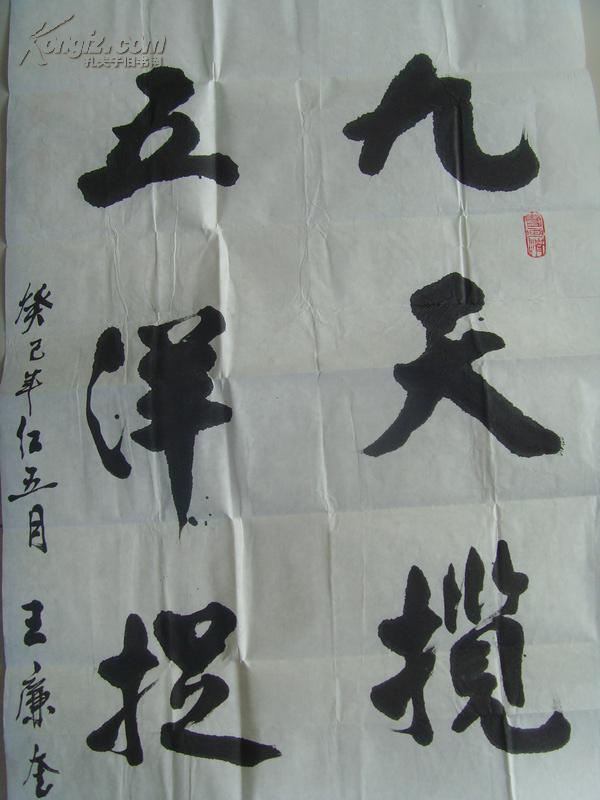 九天揽
五洋捉
癸巳年仁五月 王廉奎
Kongfz.com
孔夫子旧书网